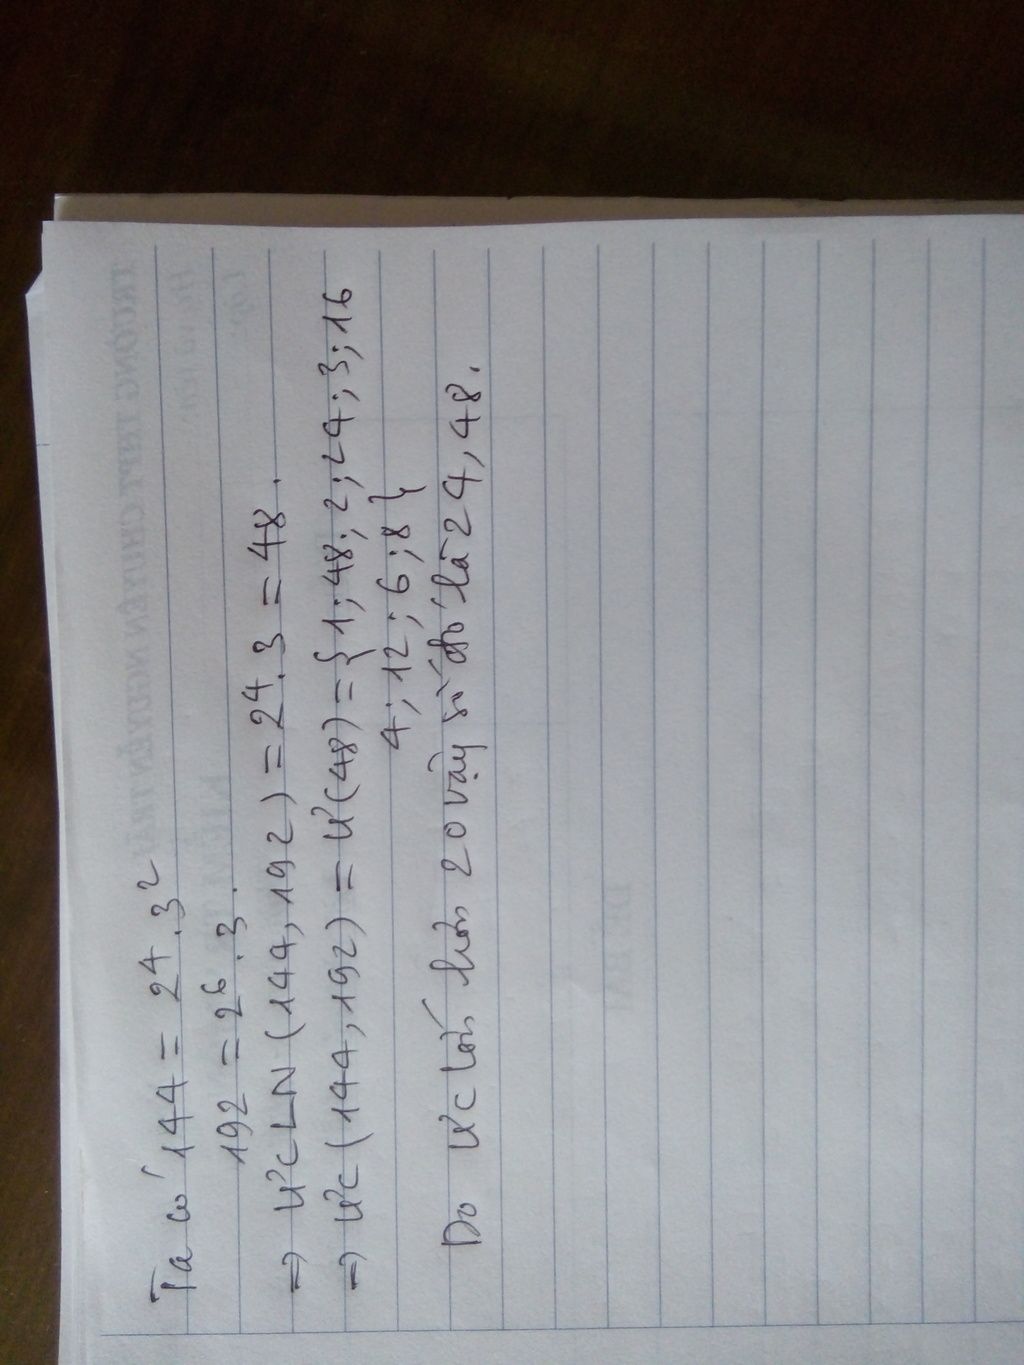 Ta có 144 = 2⁴.3²
192 = 2⁶.3.
=> ƯCLN (144,192) = 2⁴.3 = 48.
=> ƯC (144,192) = Ư(48) = {1; 48; 2; 24; 3; 16
4; 12; 6; 8}
Do ƯC lớn hơn 20 vậy số đó là 24, 48.